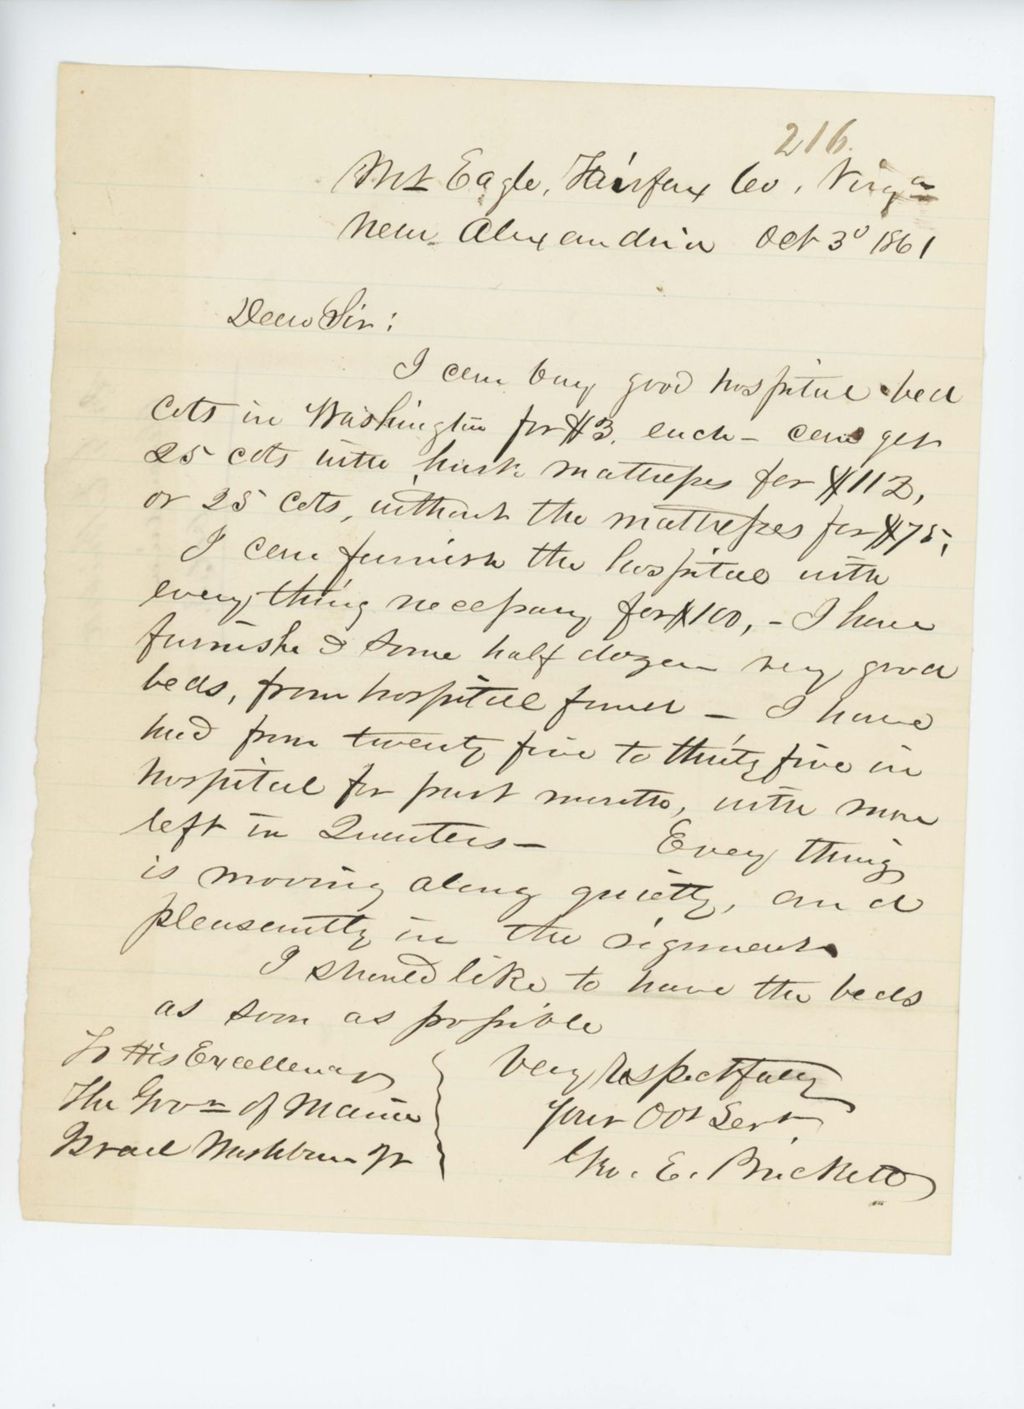 216.
Mt Eagle, Fairfax Co, Virga
near Alexandria Oct 3d 1861
Dear Sir:
I can buy good hospital bed
cots in Washington for $3. each - can get
25 cots with husk mattresses for $112,
or 25 cots, without the mattresses for $75,
I can furnish the hospital with
every thing necessary for $100, - I have
furnished some half dozen very good
beds, from hospital funds - I have
had from twenty five to thirty five in
hospital for past month, with more
left in Quarters - Every thing
is moving along quietly, and
pleasantly in the regiment
I should like to have the beds
as soon as possible
Very Respectfully
Your Obt Servt
Geo. E. Brickett
To His Excellency
The Govr of Maine
Israel Washburn Jr